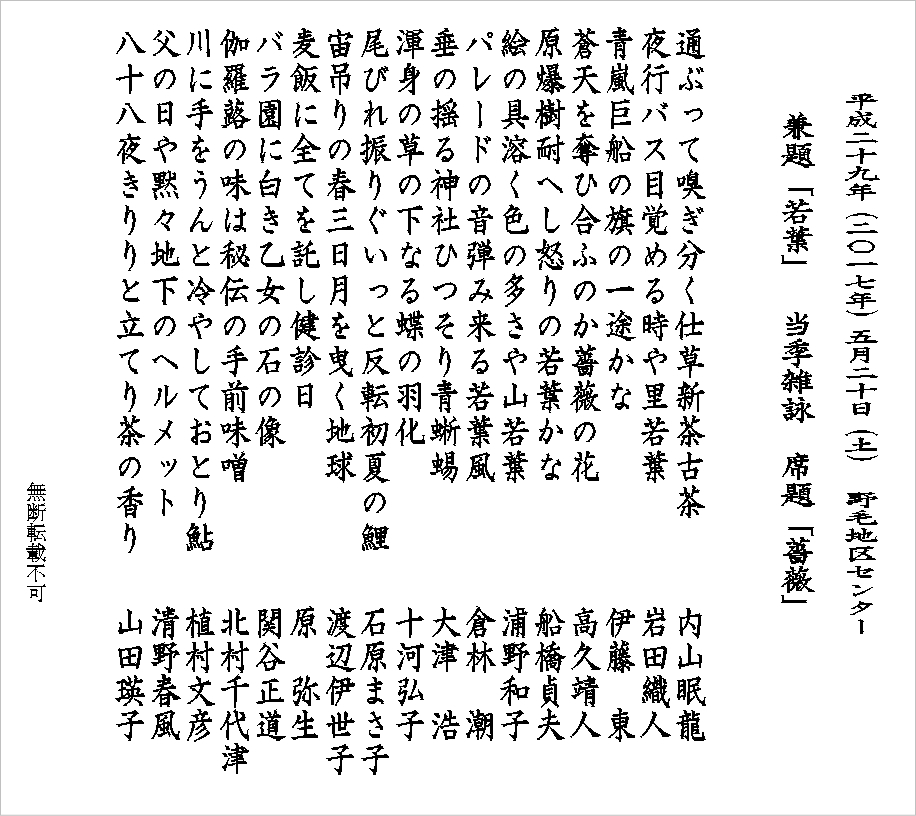 平成二十九年（二〇一七年）五月二十日（土）　野毛地区センター
兼題「若葉」　当季雑詠　席題「薔薇」
通ぶって嗅ぎ分く仕草新茶古茶　内山眠龍
夜行バス目覚める時や里若葉　岩田織人
青嵐巨船の旗の一途かな　伊藤　東
蒼天を奪ひ合ふのか薔薇の花　高久靖人
原爆樹耐へし怒りの若葉かな　船橋貞夫
絵の具溶く色の多さや山若葉　浦野和子
パレードの音弾み来る若葉風　倉林　潮
垂の揺る神社ひつそり青蜥蜴　大津　浩
渾身の草の下なる蝶の羽化　十河弘子
尾びれ振りぐいっと反転初夏の鯉　石原まさ子
宙吊りの春三日月を曳く地球　渡辺伊世子
麦飯に全てを託し健診日　原　弥生
バラ園に白き乙女の石の像　関谷正道
伽羅蕗の味は秘伝の手前味噌　北村千代津
川に手をうんと冷やしておとり鮎　植村文彦
父の日や黙々地下のヘルメット　清野春風
八十八夜きりりと立てり茶の香り　山田瑛子
無断転載不可